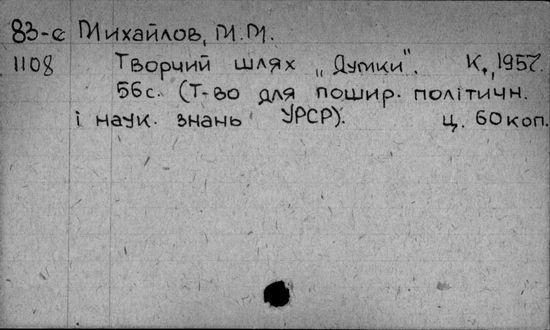 83-е Михайлов, М.М.
1108 Творчий шлях „Думки". К., 1957.
56с. (Т-во для пошир. політичн.
і наук. знань УРСР). ц. 60 коп.